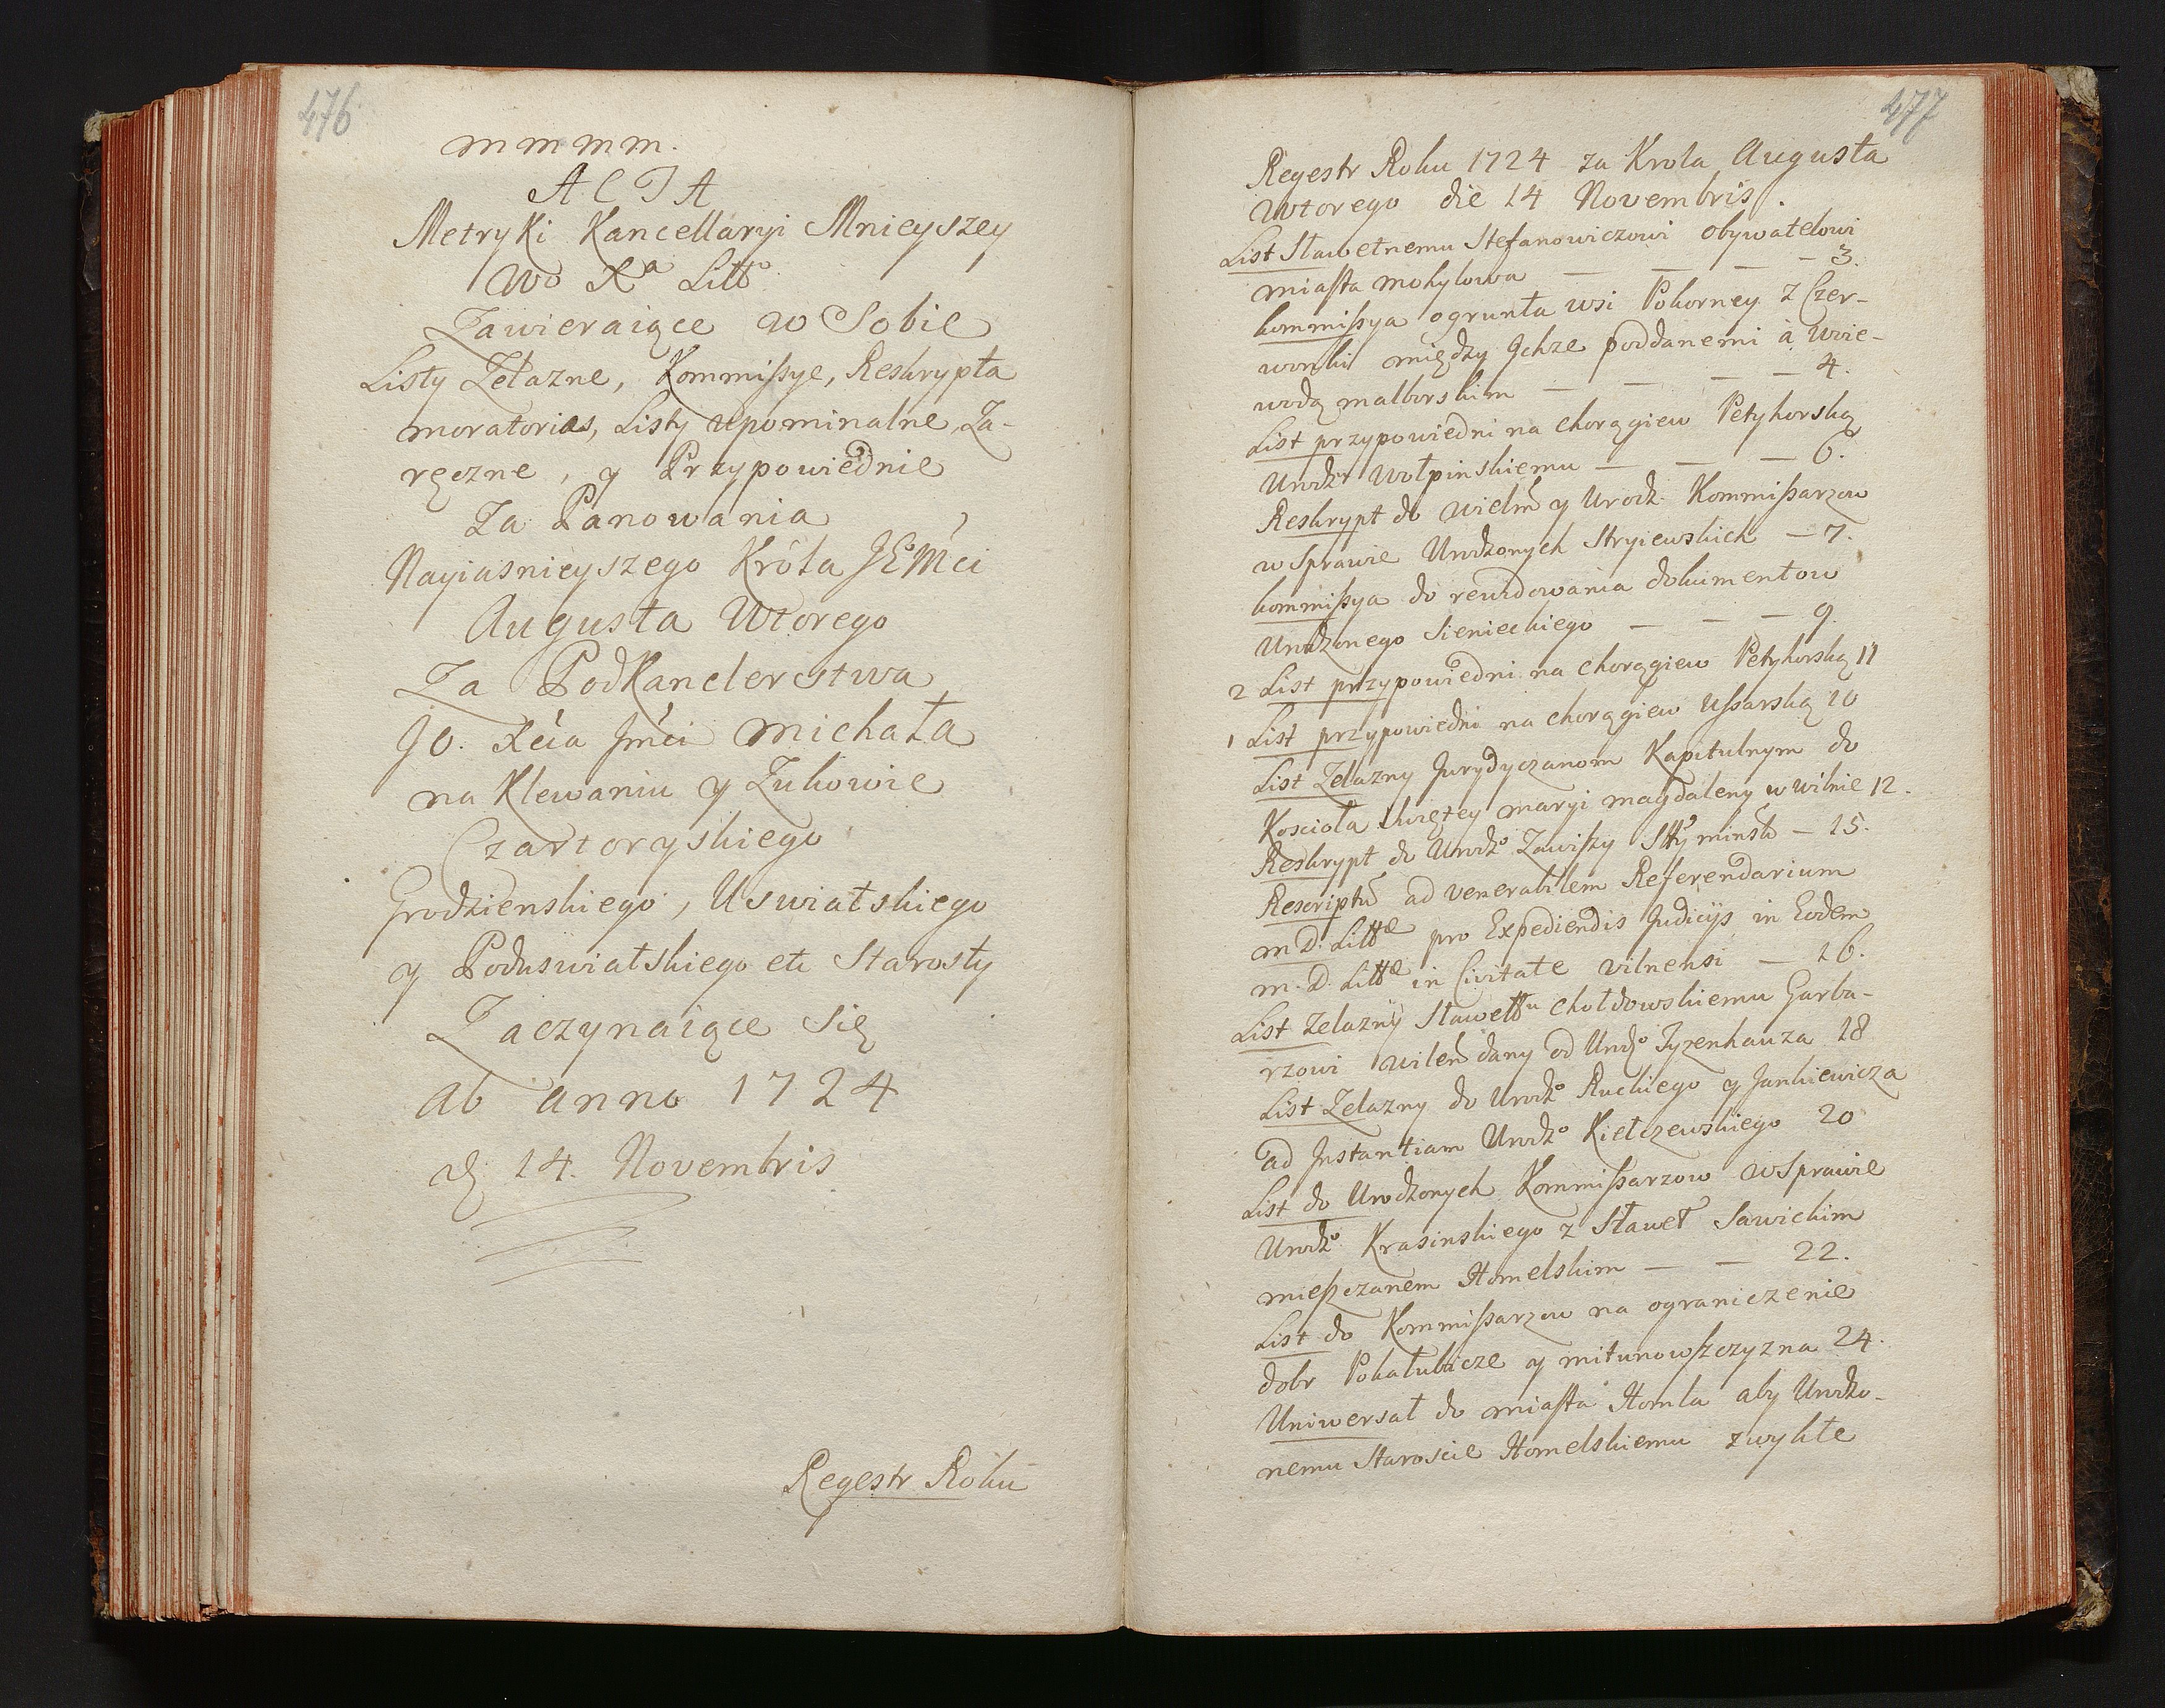 476
m m m m.
ACTA
Metryki Kancellaryi Mnieyszey
Wo Xª Littº
Zawieraiące w Sobie
Listy Żelazne, Kommissye, Reskrypta
moratorias, Listy upominalne, Za-
ręczne, y Przypowiednie
Za Panowania
Nayiasnieyszego Króla JEMći
Augusta Wtorego
Za PodKanclerstwa
JO. Xćia Jmći michała
na Klewaniu y Żukowie
Czartoryskiego
Grodzienskiego, Uswiatskiego
y Poduswiatskiego etc Starosty
Zaczynaiące Się
ab anno 1724
d. 14. Novembris
Regestr Roku
477
Regestr Roku 1724 za Krola Augusta
wtorego die 14 Novembris.
List Sławetnemu Stefanowiczowi obywatelowi
miasta mohylowa — — — 3.
kommissya o grunta wsi Pokorney z Czer-
wonki między Jchże poddanemi à woie-
wodą malborskim — — — — 4.
List przypowiedni na chorągiew Petyhorską
Urodzº Wołpinskiemu — — — 6.
Reskrypt do wielm y Urodz. Kommissarzow
w sprawie Urodzonych Stryiewskich — 7.
kommissya do rewidowania dokumentow
Urodzonego Sienieckiego — — — 9.
2 List przypowiedni na chorągiew Petyhorską 11
1 List przypowiedni na chorągiew Ussarską 10
List Żelazny Jurydyczanom Kapitulnym do
Kosciola swiętey maryi magdaleny w wilnie 12.
Reskrypt do Urodzº Zawiszy Stty minsk — 15.
Rescriptũ ad venerabilem Referendarium
m. D. Littæ pro Expediendis Judicijs in Eodem
m. D. Littæ in Civitate vilnensi — 16.
List żelazny Sławettu chołdowskiemu Garba-
rzowi wileń dany od Urodzº Tyzenhauza 18
List Żelazny do Urodzº Ruckiego y Jankiewicza
ad Jnstantiam Urodzº Kiełczewskiego 20
List do Urodzonych Kommissarzow w sprawie
Urodzº Krasinskiego z Sławet Sawickim
mieszczanem Homelskim — — 22.
List do Kommissarzow na ograniczenie
dobr Pokałubicze y mitunowszczyzna 24.
Uniwersał do miasta Homla aby Urodzo-
nemu Staroscie Homelskiemu zwykłe